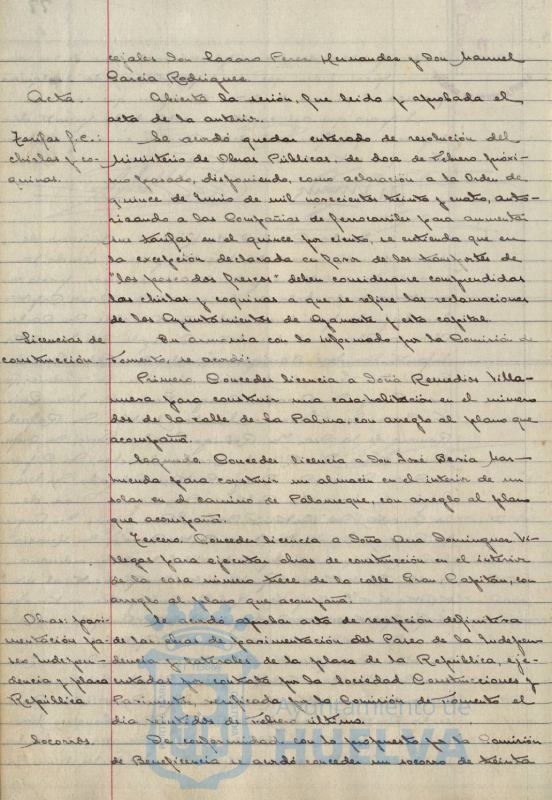 cejales Don Lazaro Perez Hernandez y Don Manuel
Garcia Rodriguez.
Acta.
Abierta la sesión, fue leido y aprobada el
acta de la anterior.
Tarifas f.c.:
chirlas y co-
quinas.
Se acordó quedar enterado de resolución del
Ministerio de Obras Públicas, de doce de Febrero próxi-
mo pasado, disponiendo, como aclaración a la Orden de
quince de Junio de mil novecientos treinta y cuatro, auto-
rizando a las Compañias de ferrocarriles para aumentar
sus tarifas en el quince por ciento, se entienda que en
la excepción declarada en favor de los transportes de
"los pescados frescos" deben considerarse comprendidas
las chirlas y coquinas a que se refiere las reclamaciones
de los Ayuntamientos de Ayamonte y esta capital.
Licencias de
construcción.
En armonia con lo informado por la Comisión de
Fomento, se acordó:
Primero. Conceder licencia a Doña Remedios Villa-
nueva para construir una casa habitación en el número
dos de la calle de la Palma, con arreglo al plano que
acompaña.
Segundo. Conceder licencia a Don José
para construir un almacén en el interior de un
solar en el camino de Palomeque, con arreglo al plano
que acompaña.
Tercero. Conceder licencia a Doña Ana Dominguez Vi-
llegas para ejecutar obras de construcción en el interior
de la casa número trece de la calle Gran Capitan, con
arreglo al plano que acompaña.
Obras: pavi-
mentación Pa-
seo Indepen-
dencia y plaza
República
Se acordó aprobar acta de recepción definitiva
de las obras de pavimentación del Paseo de la Indepen-
dencia y laterales de la plaza de la República, eje-
cutadas por contrata por la Sociedad Construcciones y
Pavimentos, verificada por la Comisión de Fomento el
dia veintidos de Febrero último.
Socorros.
De conformidad con lo propuesto por la Comisión
de Beneficencia se acordó conceder un socorro de treinta
Ayuntamiento de
HUELVA